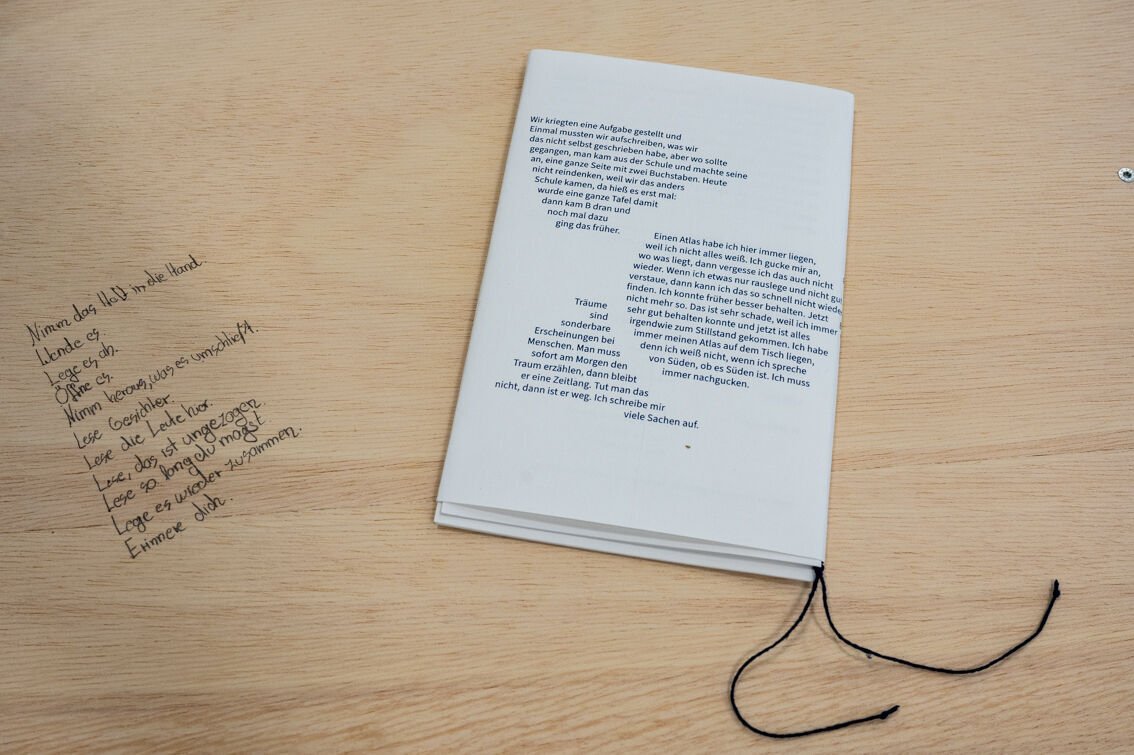 Nimm das Heft in die Hand.
Wende es.
Lege es ab.
Öffne es.
Nimm heraus, was es umschließt.
Lese Gesichter.
Lese die Leute vor.
Lese, das ist ungezogen.
Lese so lang du magst
Lege es wieder zusammen.
Erinnere dich.
Wir kriegten eine Aufgabe gestellt und
Einmal mussten wir aufschreiben, was wir
das nicht selbst geschrieben habe, aber wo sollte
gegangen, man kam aus der Schule und machte seine
an, eine ganze Seite mit zwei Buchstaben. Heute
nicht reindenken, weil wir das anders
Schule kamen, da hieß es erst mal:
wurde eine ganze Tafel damit
dann kam B dran und
noch mal dazu
ging das früher.
Einen Atlas habe ich hier immer liegen,
weil ich nicht alles weiß. Ich gucke mir an,
wo was liegt, dann vergesse ich das auch nicht
wieder. Wenn ich etwas nur rauslege und nicht gu
verstaue, dann kann ich das so schnell nicht wiede
finden. Ich konnte früher besser behalten. Jetzt
nicht mehr so. Das ist sehr schade, weil ich immer
sehr gut behalten konnte und jetzt ist alles
irgendwie zum Stillstand gekommen. Ich habe
immer meinen Atlas auf dem Tisch liegen,
denn ich weiß nicht, wenn ich spreche
von Süden, ob es Süden ist. Ich muss
immer nachgucken.
Träume
sind
sonderbare
Erscheinungen bei
Menschen. Man muss
sofort am Morgen den
Traum erzählen, dann bleibt
er eine Zeitlang. Tut man das
nicht, dann ist er weg. Ich schreibe mir
viele Sachen auf.